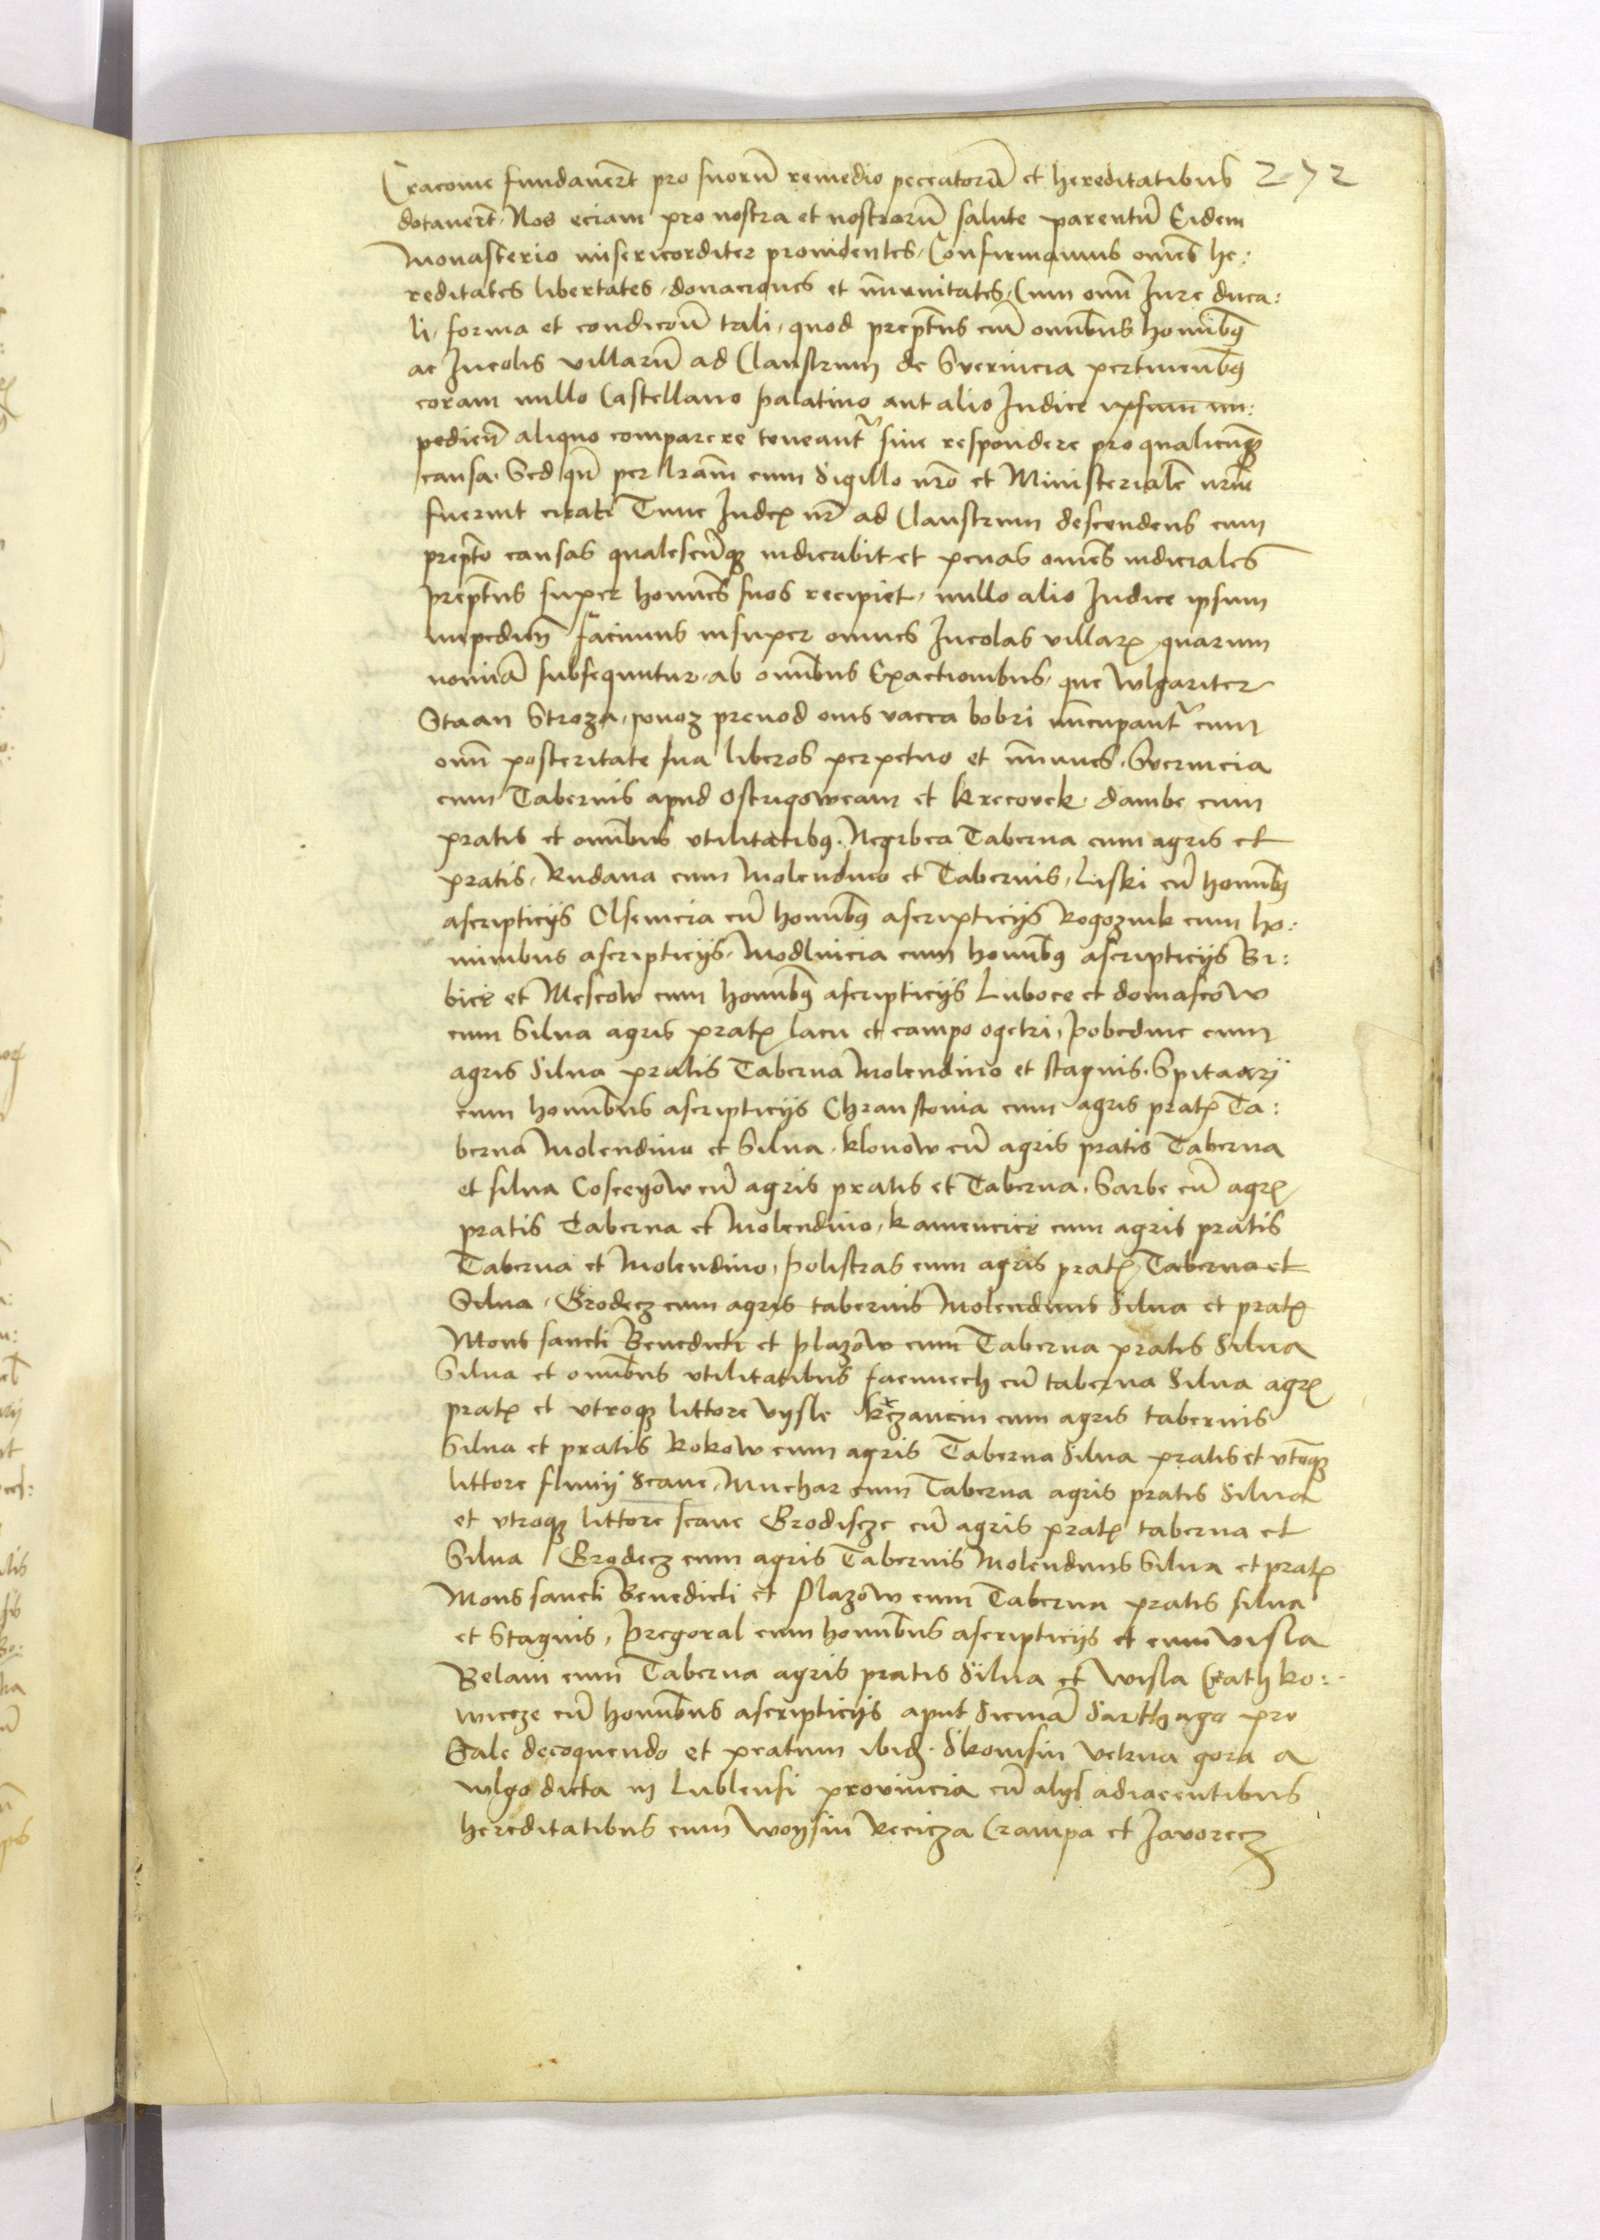 Cracovie fundavert pro suorū remedio peccatorū et hereditatibus 272
dotavert. Nos eciam pro nostra et nostrorū salute parentū Eidem
Monasterio misericorditer providentes, Confirmamus omēs he:
reditates libertates, donaciones et īmunitates, Cum omī Jure duca:
li, forma et condicōū tali, quod preptus cū omībus homībꝫ
ac Incolis villarū ad Claustrum de Svernicia pertinenbꝫ
coram nullo Castellano palatino aut alio Judice ipsum im:
pedieñ aliquo comparere teneantʳ sive respondere pro qualicūqꝫ
causa. Sed qñ per lram cum Sigillo nro et Ministerialē nrm̄
fuerint citati Tunc Judex nr ad Claustrum descendens cum
prepto causas qualescūqꝫ iudicabit et penas omēs iudiciales
preptus super homines suos recipiet, nullo alio Judice ipsum
impedieñ facimus insuper omnes Incolas villarꝝ quarum
nomīa subsequntur, ab omībus Exactionibus, que wlgariter
Staan Stroza, povoz prevod ovis vacca bobri nūcupantʳ cum
omī posteritate sua liberos perpetuo et īmunes. Svernicia
cum Tabernis apud Ostrigowcam et krecovek. dambe cum
pratis et omībus utilitatibꝫ. Negrbca Taberna cum agris et
pratis, Rudava cum Molendino et Tabernis, Liski cū homībꝫ
ascripticijs Olsenicia cū homībꝫ ascripticijs Rogoznik cum ho:
minibus ascripticijs, Modlnicia cum homībꝫ ascripticijs Bi:
bice et Mescow cum homībꝫ ascripticijs Luboce et domascow
cum Silva agris pratꝭ lacu et campo ogetri, Pobednic cum
agris Silva pratis Taberna Molendino et stagnis. Spitaarÿ
cum homībus ascripticijs Chraustovia cum agris pratꝭ Ta:
berna Molendino et Silva. klonow cū agris pratis Taberna
et silva Cosceyow cū agris pratis et Taberna, Sarbe cū agrꝭ
pratis Taberna et Molendino, kamencice cum agris pratis
Taberna et Molendino, Polistras cum agris pratꝭ Taberna et
Silva, Grodecz cum agris tabernis Molendinis Silva et pratꝭ
Mons sancti Benedicti et plazow cum Taberna pratis Silva
Silva et omībus utilitatibus facinnech cū taberna Silva agrꝭ
pratꝭ et utroqꝫ littore vysle kczancin cum agris tabernis
Silva et pratis kokow cum agris Taberna Silva pratis et utroqꝫ
littore fluvij Scave, Muchar cum Taberna agris pratis Silva
et utroqꝫ littore scave Grodiscze cū agris pratꝭ taberna et
Silva Grodecz cum agris Tabernis Molendinis Silva et pratꝭ
Mons sancti Benedicti et Plazow cum Taberna pratis silva
et Stagnis, Pregoral cum homībus ascripticijs et cum visla
Belani cum Taberna agris pratis Silva et wisla Crathko:
wicze cū homībus ascripticijs aput Sicinā Sarthago pro
Sale decoquendo et pratum ibidꝫ. Skomsin vetrna gora a
wlgo dicta in Lublensi provincia cū alijs adiacentibus
hereditatibus cum woysin Recicza Crampa et Javorecz